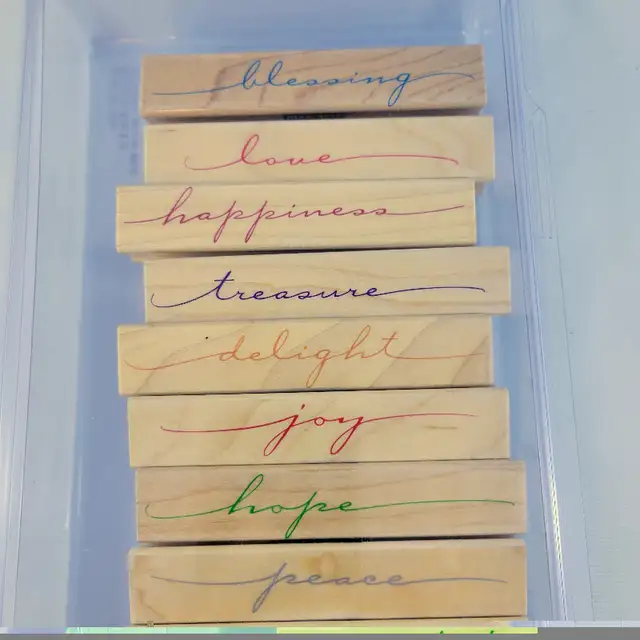 blessing
love
happiness
treasure
delight
joy
hope
peace